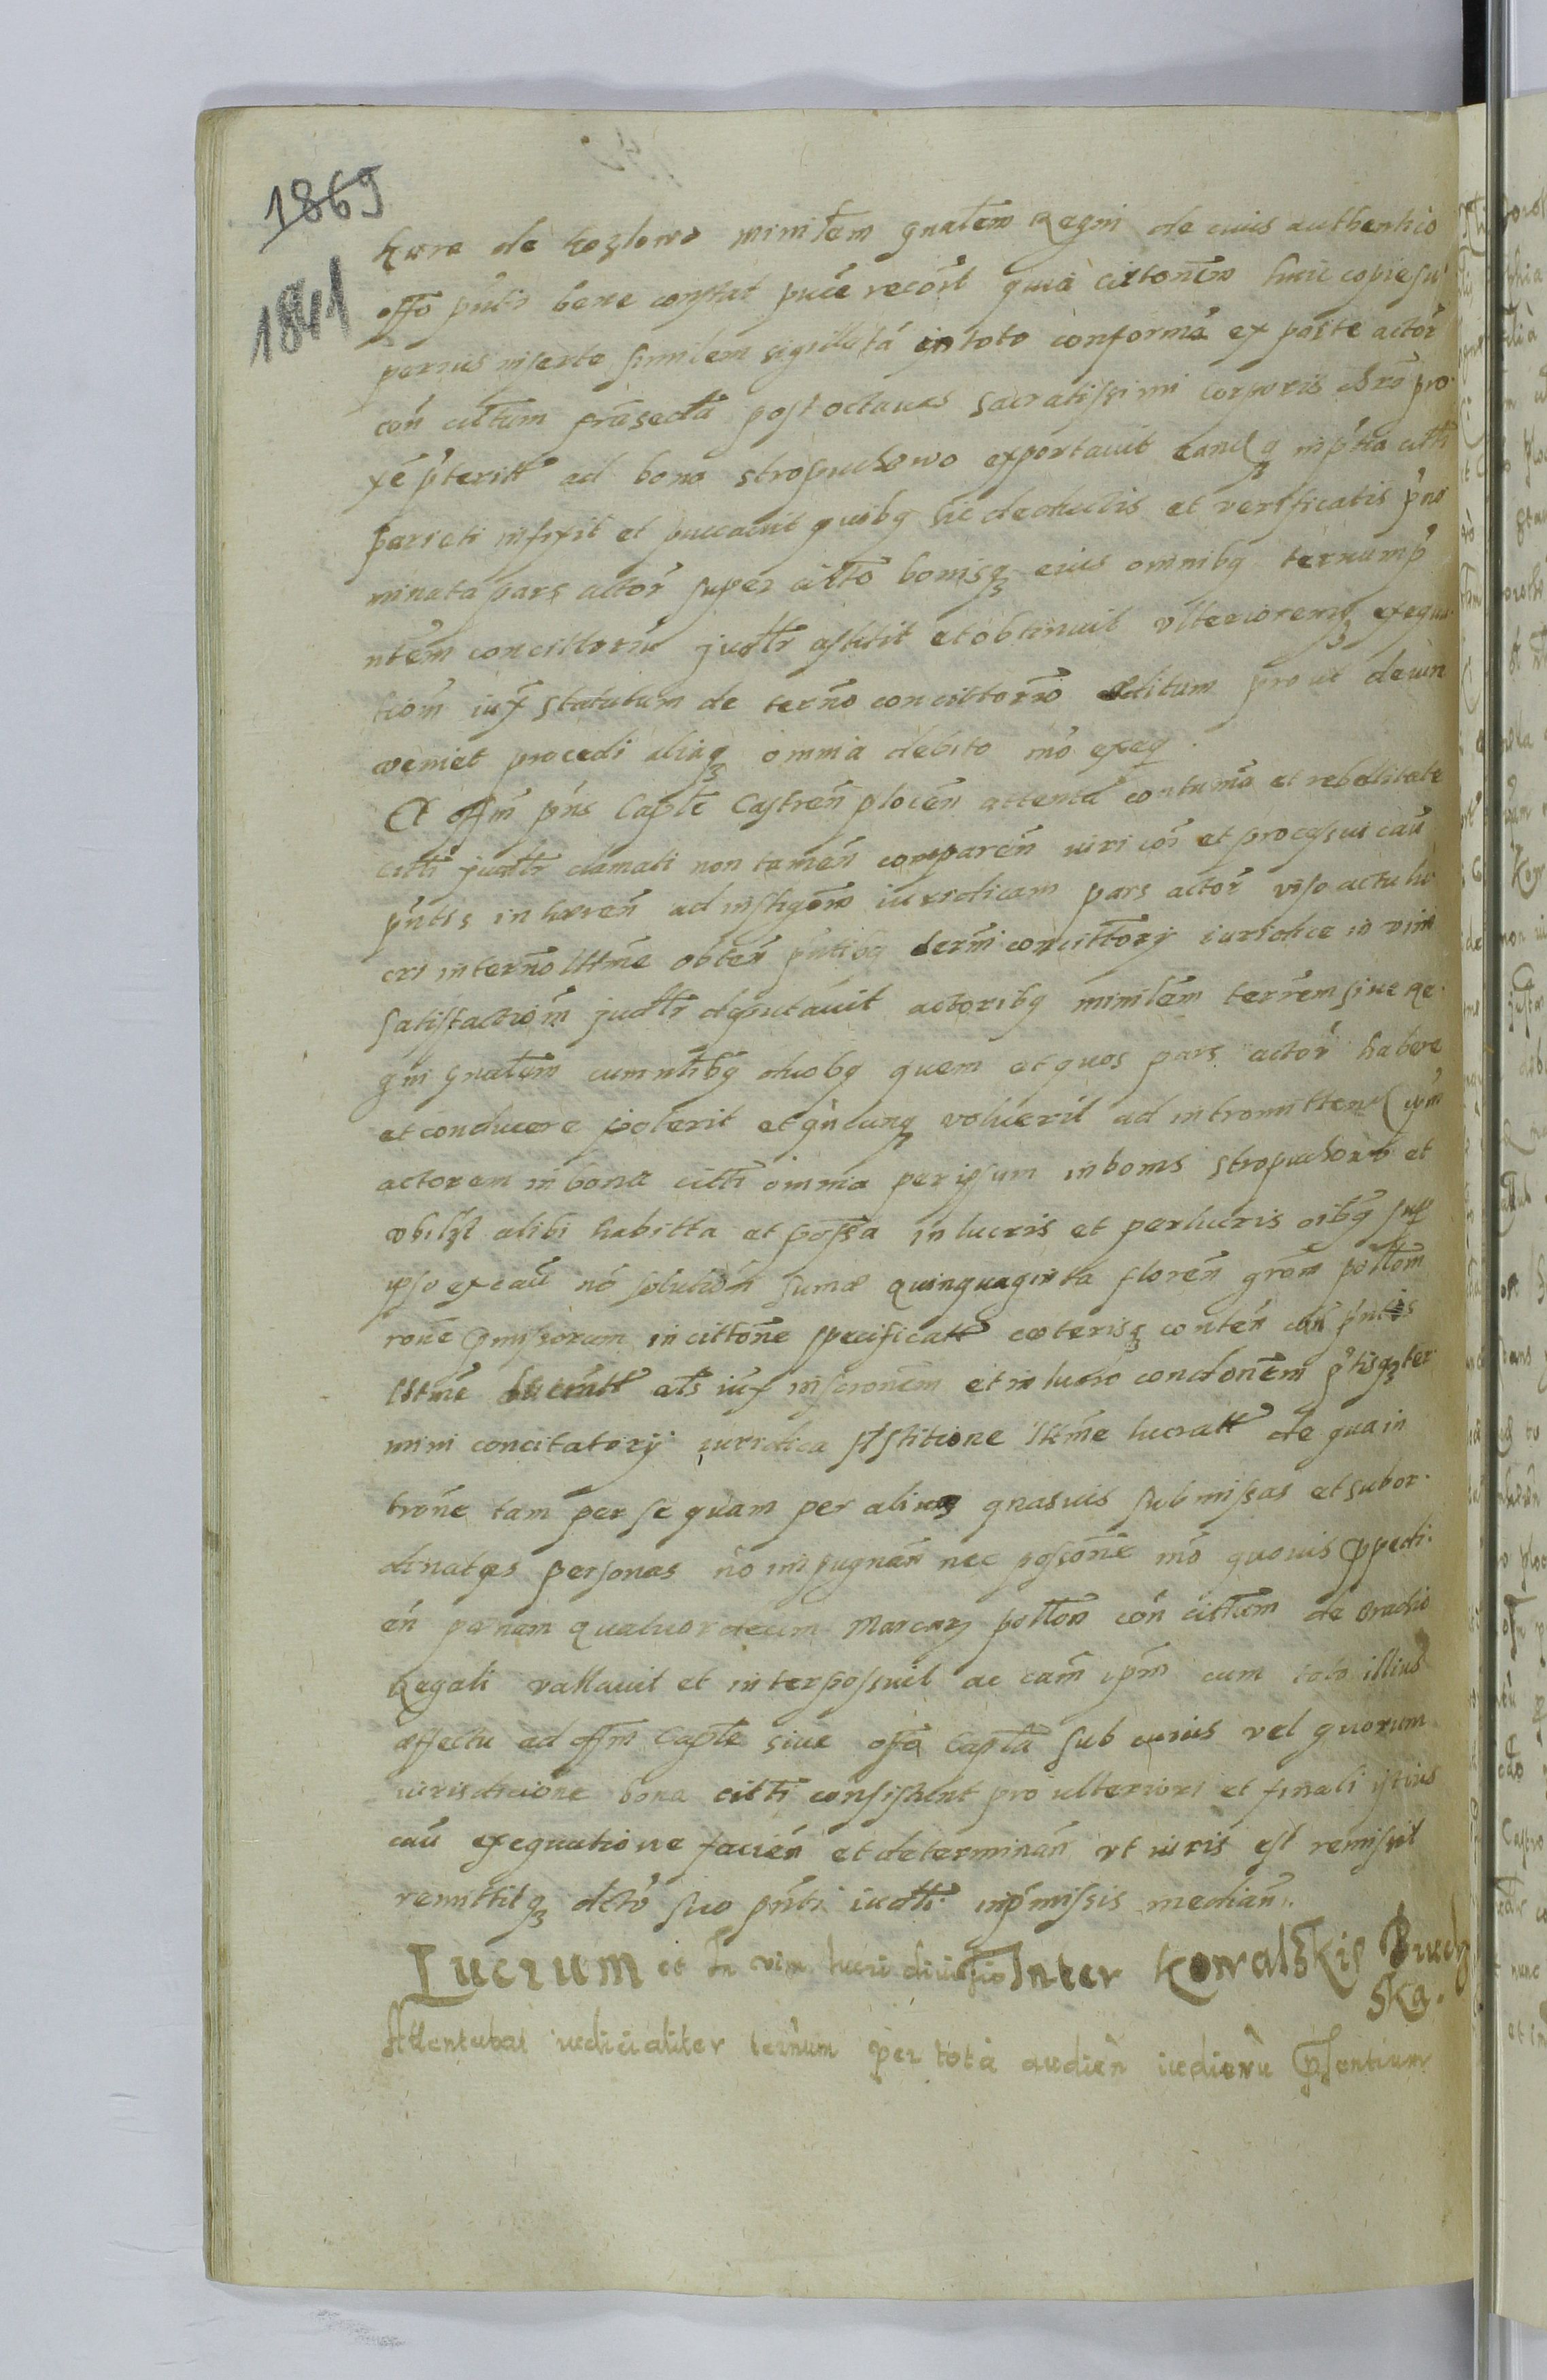 1869
1841
Kura de Kozlowo ministem gnalem Regni de cuius authentico
offo pnti bene constat puce recort quia cittonem huic copie su
perius inserte similem sigillata in toto conforma ex parte actor
con cittum fra secda post octauas sacratissimi corporis chri pro
xe pterit ad bona stropuchowo exportauit eamq in ptta citti
parieti infixit et puccauit quibq sic deductis et verificatis pno
minata pars actor super citto bonisq eius omnibq ternum p
ntem concittoriu judtr astitit et obtinuit vlterioremq exequu
tiom iux statutum de terno concittorio editum prout de iure
veniet procedi aliaq omnia debito mo exeq.
Et offm pns Caple Castren plocen attenta contuma et rebellitate
citti judtr clamati non tamen comparen iuri coi et processui cau
pntis inhæren ad instigom iuridicam pars actor viso actu lu
cri in terno ittme obten pntibq termi concittorij iuridice in vim
satisfactiom judtr deputauit actoribq ministem terrem siue Re
gni gnalem cum ntibq duobq quem et quos pars actor habere
et conducere poterit et quncunq voluerit ad intromitten ipm
actorem in bona citti omnia per ipsum in bonis stropuchowo et
vbilzt alibi habitta et possa in lucris et perlucris oibq sup
ipso ex cau no solution sumæ quinquaginta floren gron pollon
rone pmissorum in cittone specificatt cæterisq conten con pntis
ittme lucratt als iux inscronem et in lucro condonem ptisq ter
mini concitatorij iuridica astitione ittme lucratt de qua in
trone tam per se quam per alias quasuis submissas et subor
dinatas personas no impugnan nec possone mo quouis ppedi
en penam quatuordecim Marcarz pollon con cittum de bradio
Regali vallauit et interpossuit ac cam ipm cum toto illius
effectu ad offm Caple siue offa Capla sub cuius vel quorum
iurisdicione bona citti consistent pro vlteriori et finali istius
cau exequutione facien et determinan vt iuris est remissit
remittitq dcto suo pnti iudtr in pmissis median.
Lucrum et In vim lucri diuisio Inter Kowalskie Buch
ska.
Attentabat iudicialiter ternum per tota audien iudioru psentium